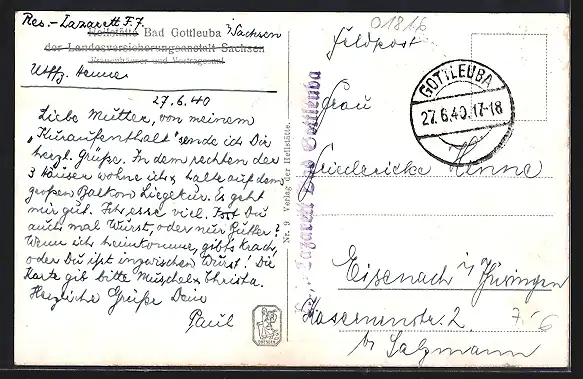 Res.-Lazarett F.7.
Heilstätte Bad Gottleuba i/Sachsen
der Landesversicherungsanstalt Sachsen
Uffz. Henne
27.6.40
Liebe Mutter, von meinem
"Kuraufenthalt" sende ich Dir
herzl. Grüße. In dem rechten der
3 Häuser wohne ich u. halte auf dem
großen Balkon Liegekur. Es geht
mir gut. Ich esse viel. Ißt Du
auch mal Wurst, oder nur Butter?
Wenn ich heimkomme, gibts Krach,
oder Du ißt inzwischen Wurst! Die
Karte gib bitte Muschel u. Christa.
Herzliche Grüße Dein
Paul
Nr. 9 Verlag der Heilstätte.
Lazarett Bad Gottleuba
01816
Feldpost
GOTTLEUBA
27.6.40.17-18
Frau
Friedericke Henne
Eisenach i/Thüringen
Kasernenstr. 2
b/ Salzmann